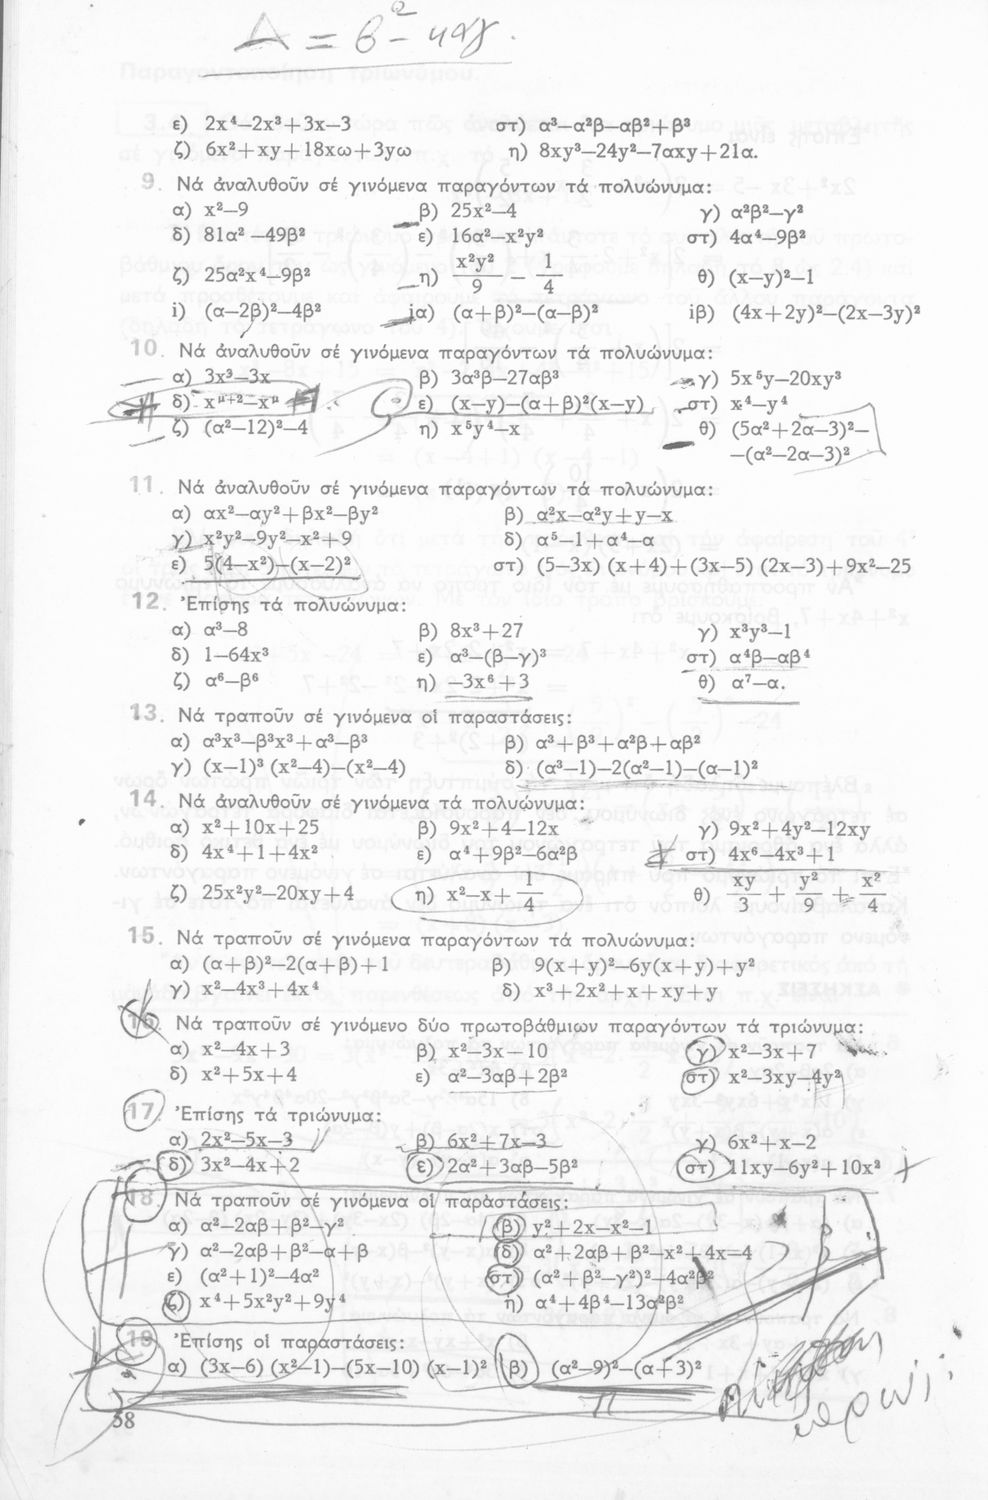 Δ = β² - 4αγ.
ε) 2x⁴—2x³+3x—3 στ) α³—α²β—αβ²+β³
ζ) 6x²+xy+18xω+3yω η) 8xy³—24y²—7αxy+21α.
9. Νά ἀναλυθοῦν σέ γινόμενα παραγόντων τά πολυώνυμα:
α) x²—9 β) 25x²—4 γ) α²β²—γ²
δ) 81α²—49β² ε) 16α²—x²y² στ) 4α⁴—9β²
ζ) 25α²x⁴—9β² η) x²y²/9 — 1/4 θ) (x—y)²—1
ι) (α—2β)²—4β² ια) (α+β)²—(α—β)² ιβ) (4x+2y)²—(2x—3y)²
10. Νά ἀναλυθοῦν σέ γινόμενα παραγόντων τά πολυώνυμα:
α) 3x³—3x β) 3α³β—27αβ³ γ) 5x⁵y—20xy³
δ) x^μ+2—x^μ ε) (x—y)—(α+β)²(x—y) στ) x⁴—y⁴
ζ) (α²—12)²—4 η) x⁵y⁴—x θ) (5α²+2α—3)²—
—(α²—2α—3)²
11. Νά ἀναλυθοῦν σέ γινόμενα παραγόντων τά πολυώνυμα:
α) αx²—αy²+βx²—βy² β) α²x—α²y+y—x
γ) x²y²—9y²—x²+9 δ) α⁵—1+α⁴—α
ε) 5(4—x²)—(x—2)² στ) (5—3x) (x+4)+(3x—5) (2x—3)+9x²—25
12. Ἐπίσης τά πολυώνυμα:
α) α³—8 β) 8x³+27 γ) x³y³—1
δ) 1—64x³ ε) α³—(β—γ)³ στ) α⁴β—αβ⁴
ζ) α⁶—β⁶ η) —3x⁶+3 θ) α⁷—α.
13. Νά τραποῦν σέ γινόμενα οἱ παραστάσεις:
α) α³x³—β³x³+α³—β³ β) α³+β³+α²β+αβ²
γ) (x—1)³ (x²—4)—(x²—4) δ) (α³—1)—2(α²—1)—(α—1)²
14. Νά ἀναλυθοῦν σέ γινόμενα τά πολυώνυμα:
α) x²+10x+25 β) 9x²+4—12x γ) 9x²+4y²—12xy
δ) 4x⁴+1+4x² ε) α⁴+9β²—6α²β στ) 4x⁶—4x³+1
ζ) 25x²y²—20xy+4 η) x²—x+ 1/4 θ) xy/3 + y²/9 + x²/4
15. Νά τραποῦν σέ γινόμενα παραγόντων τά πολυώνυμα:
α) (α+β)²—2(α+β)+1 β) 9(x+y)²—6y(x+y)+y²
γ) x²—4x³+4x⁴ δ) x³+2x²+x+xy+y
16. Νά τραποῦν σέ γινόμενο δύο πρωτοβάθμιων παραγόντων τά τριώνυμα:
α) x²—4x+3 β) x²—3x—10 γ) x²—3x+7
δ) x²+5x+4 ε) α²—3αβ+2β² στ) x²—3xy—4y²
17. Ἐπίσης τά τριώνυμα:
α) 2x²—5x—3 β) 6x²+7x—3 γ) 6x²+x—2
δ) 3x²—4x+2 ε) 2α²+3αβ—5β² στ) 11xy—6y²+10x²
18. Νά τραποῦν σέ γινόμενα οἱ παραστάσεις:
α) α²—2αβ+β²—γ² β) y²+2x—x²—1
γ) α²—2αβ+β²—α+β δ) α²+2αβ+β²—x²+4x—4
ε) (α²+1)²—4α² στ) (α²+β²—γ²)²—4α²β²
ζ) x⁴+5x²y²+9y⁴ η) α⁴+4β⁴—13α²β²
19. Ἐπίσης οἱ παραστάσεις:
α) (3x—6) (x²—1)—(5x—10) (x—1)² β) (α²—9)²—(α+3)²
58